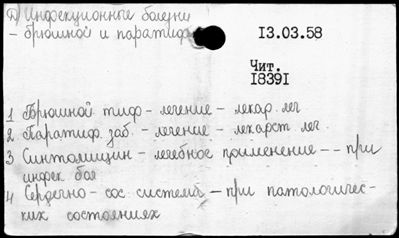 Д) Инфекционные болезни
– брюшной и паратиф
13.03.58
Чит.
18391
1 Брюшной тиф – лечение – лекар. леч
2 Паратиф. заб. – лечение – лекарст. леч.
3 Синтомицин – лечебное применение – – при
инфек бол
4 Сердечно – сос. система – при патологичес-
ких состояниях